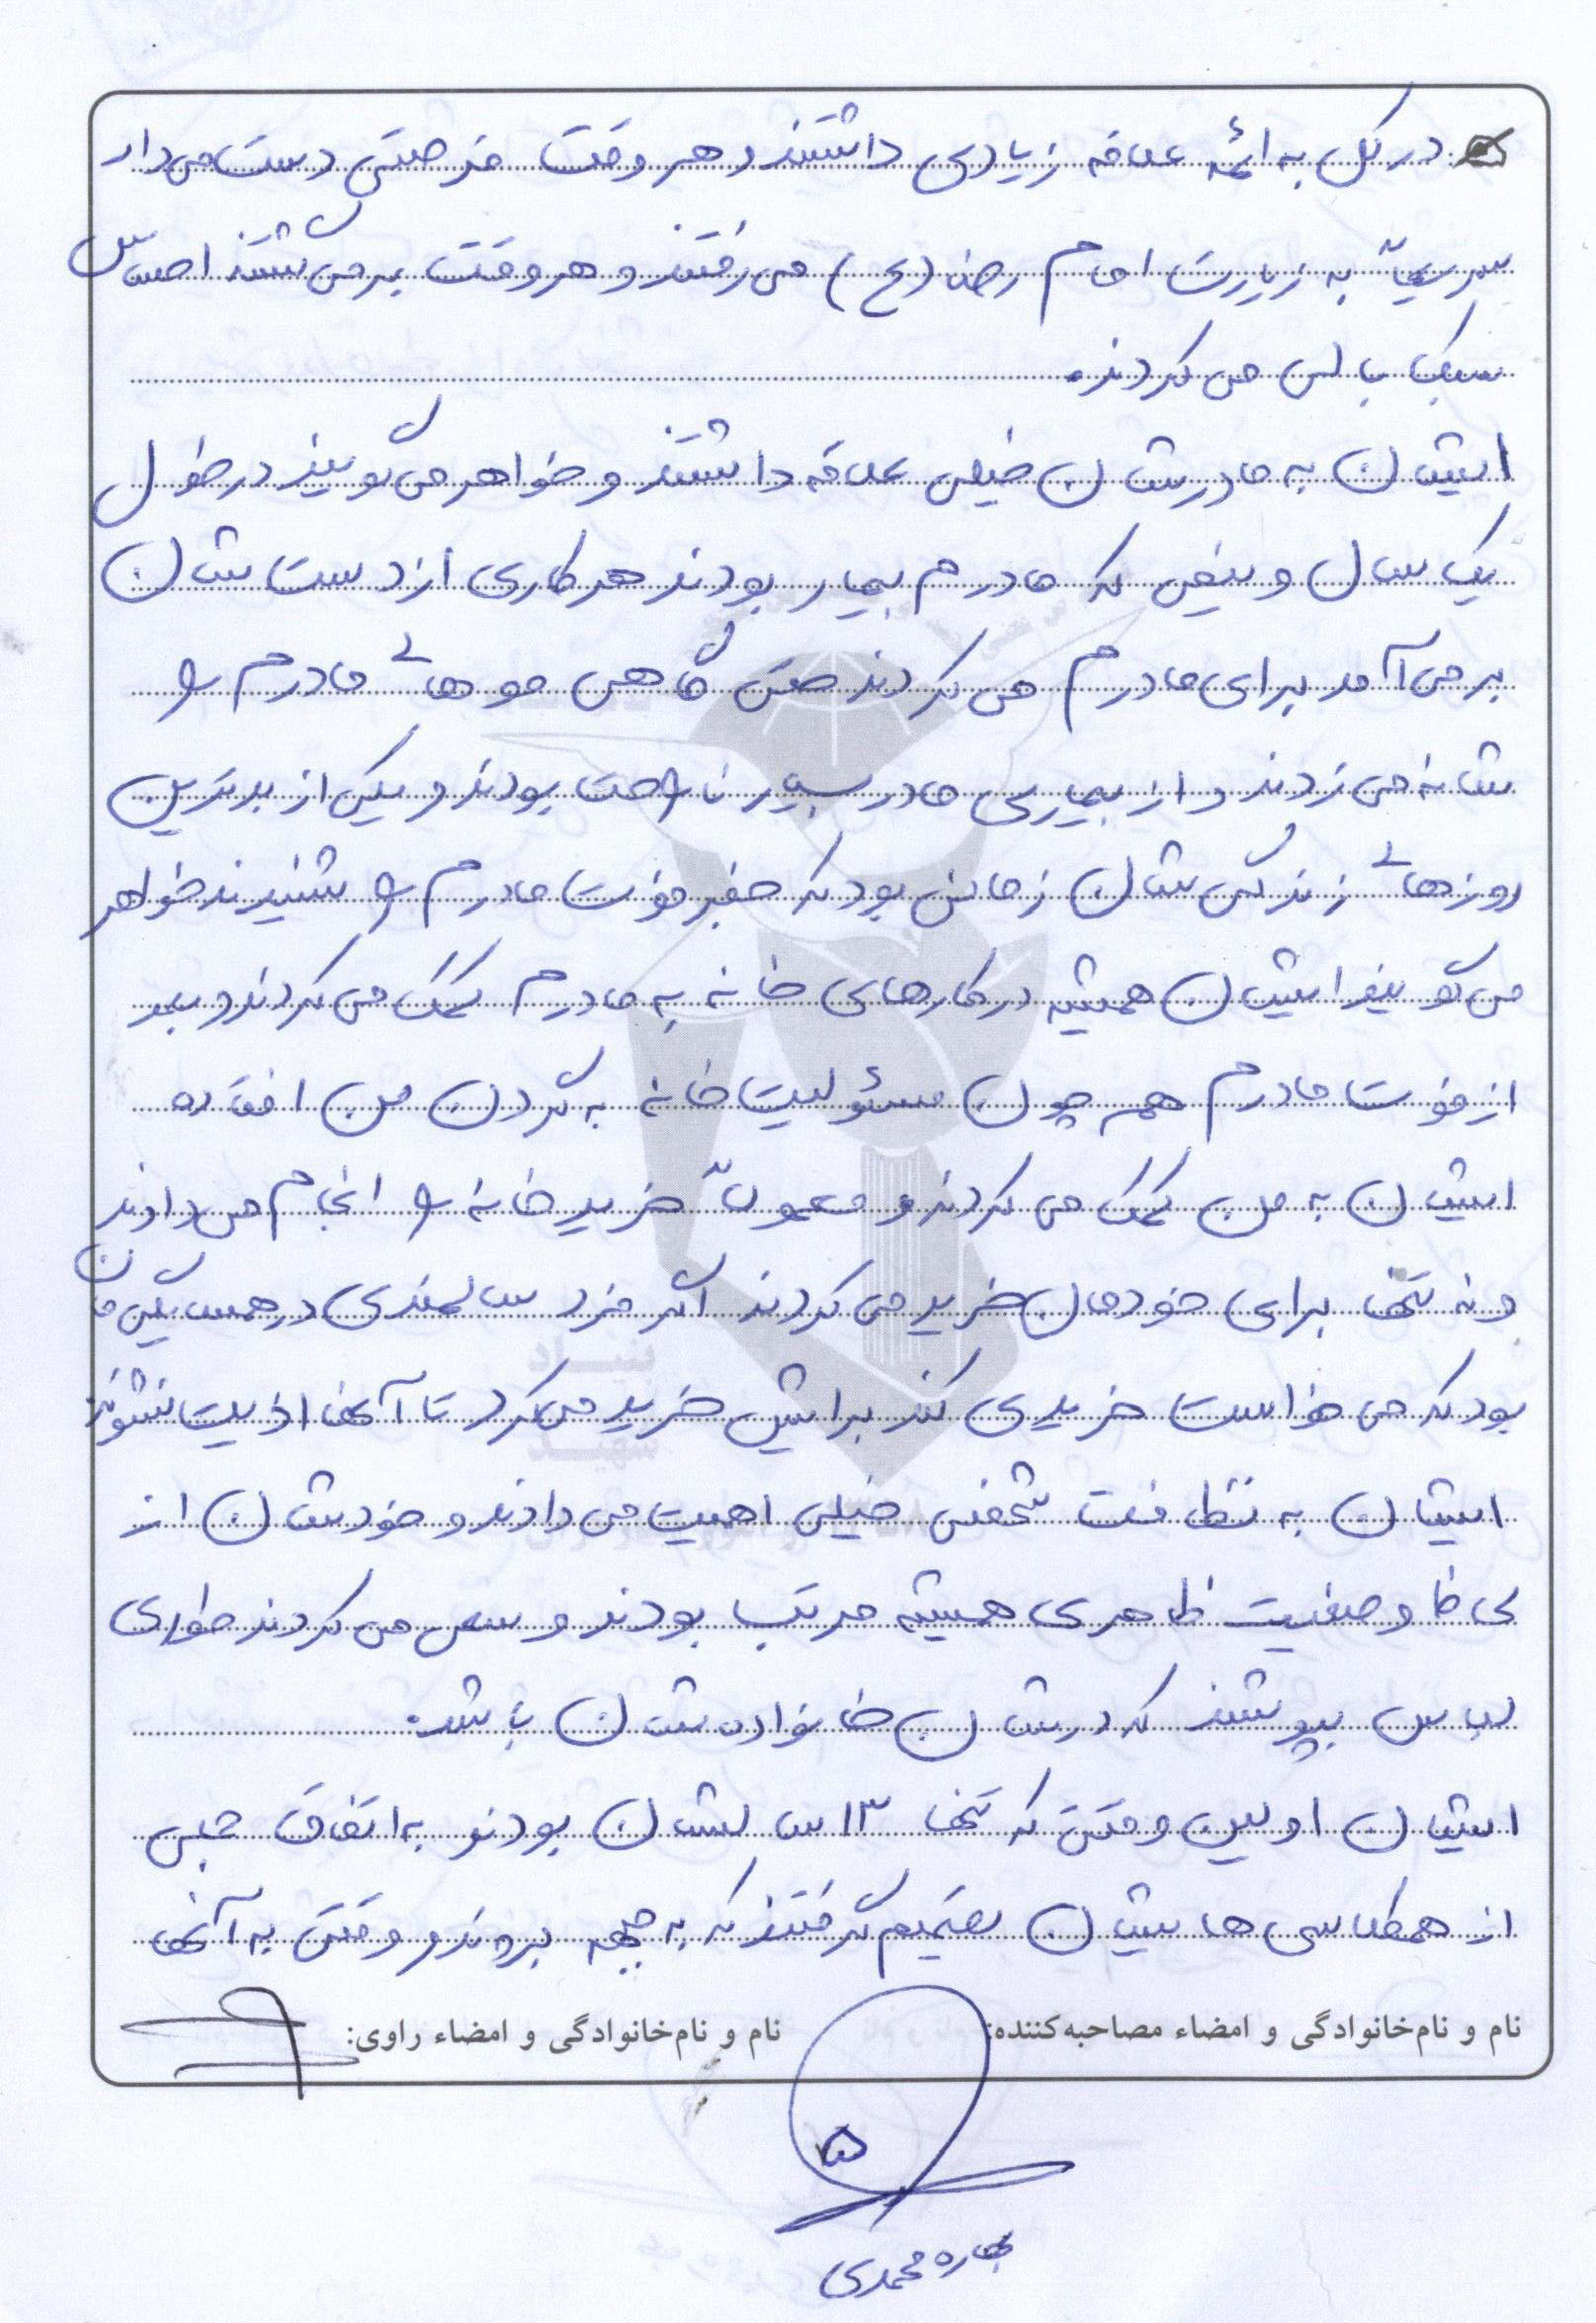 در کل به ائمه علاقه زیادی داشتند و هر وقت فرصتی دست می داد
سریعاً به زیارت امام رضا (ع) می رفتند و هر وقت برمی گشتند احساس
سبک بالی می کردند.
ایشان به مادرشان خیلی علاقه داشتند و خواهر می گویند در طول
یک سال و نیمی که مادرم بیمار بودند هر کاری از دست شان
برمی آمد برای مادرم می کردند حتی گاهی موهای مادرم را
شانه می زدند و از بیماری مادر بسیار ناراحت بودند و یکی از بدترین
روزهای زندگی شان زمانی بود که خبر فوت مادرم را شنیدند خواهر
می گویند ایشان همیشه در کارهای خانه به مادرم کمک می کردند و بعد
از فوت مادرم هم چون مسئولیت خانه به گردن من افتاده
ایشان به من کمک می کردند و معمولاً خرید خانه را انجام می دادند
و نه تنها برای خودمان خرید می کردند اگر فرد سالمندی در همسایگی مان
بود که می خواست خریدی کند برایش خرید می کرد تا آنها اذیت نشوند
ایشان به نظافت شخصی خیلی اهمیت می دادند و خودشان از
لحاظ وضعیت ظاهری همیشه مرتب بودند و سعی می کردند طوری
لباس بپوشند که در شان خانواده شان باشد.
ایشان اولین وقتی که تنها ۱۳ سالشان بود به اتفاق جمعی
از همکلاسی هایشان تصمیم گرفتند که به جبهه بروند و وقتی به آنها
نام و نام‌خانوادگی و امضاء مصاحبه‌کننده: نام و نام‌خانوادگی و امضاء راوی:
۵
بهاره محمدی
بنیاد
شهید